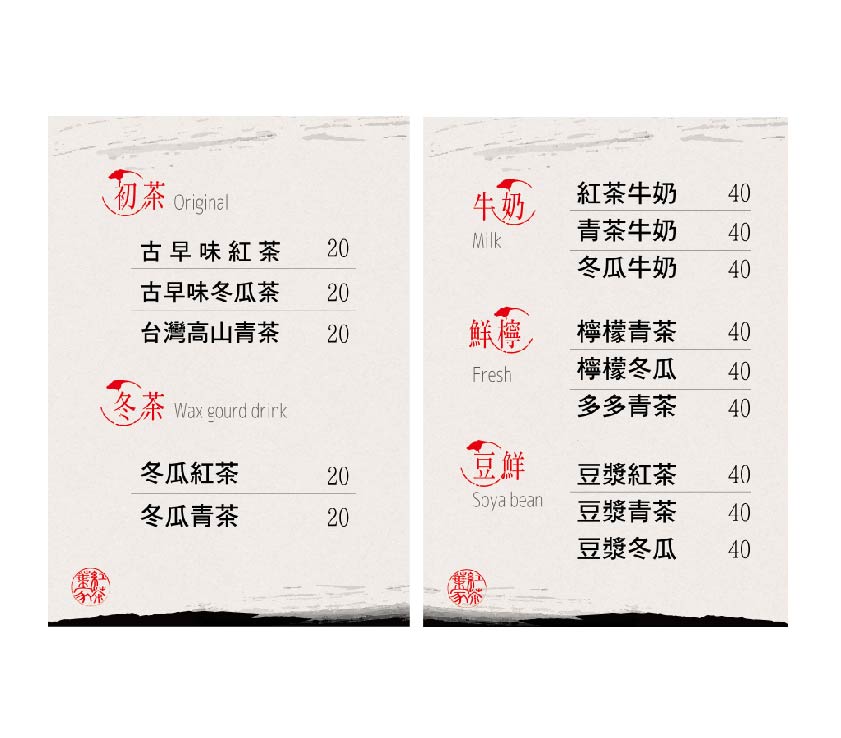 初茶 Original
古早味紅茶 20
古早味冬瓜茶 20
台灣高山青茶 20
冬茶 Wax gourd drink
冬瓜紅茶 20
冬瓜青茶 20
葉家紅茶
牛奶
Milk
紅茶牛奶 40
青茶牛奶 40
冬瓜牛奶 40
鮮檸
Fresh
檸檬青茶 40
檸檬冬瓜 40
多多青茶 40
豆鮮
Soya bean
豆漿紅茶 40
豆漿青茶 40
豆漿冬瓜 40
葉家紅茶